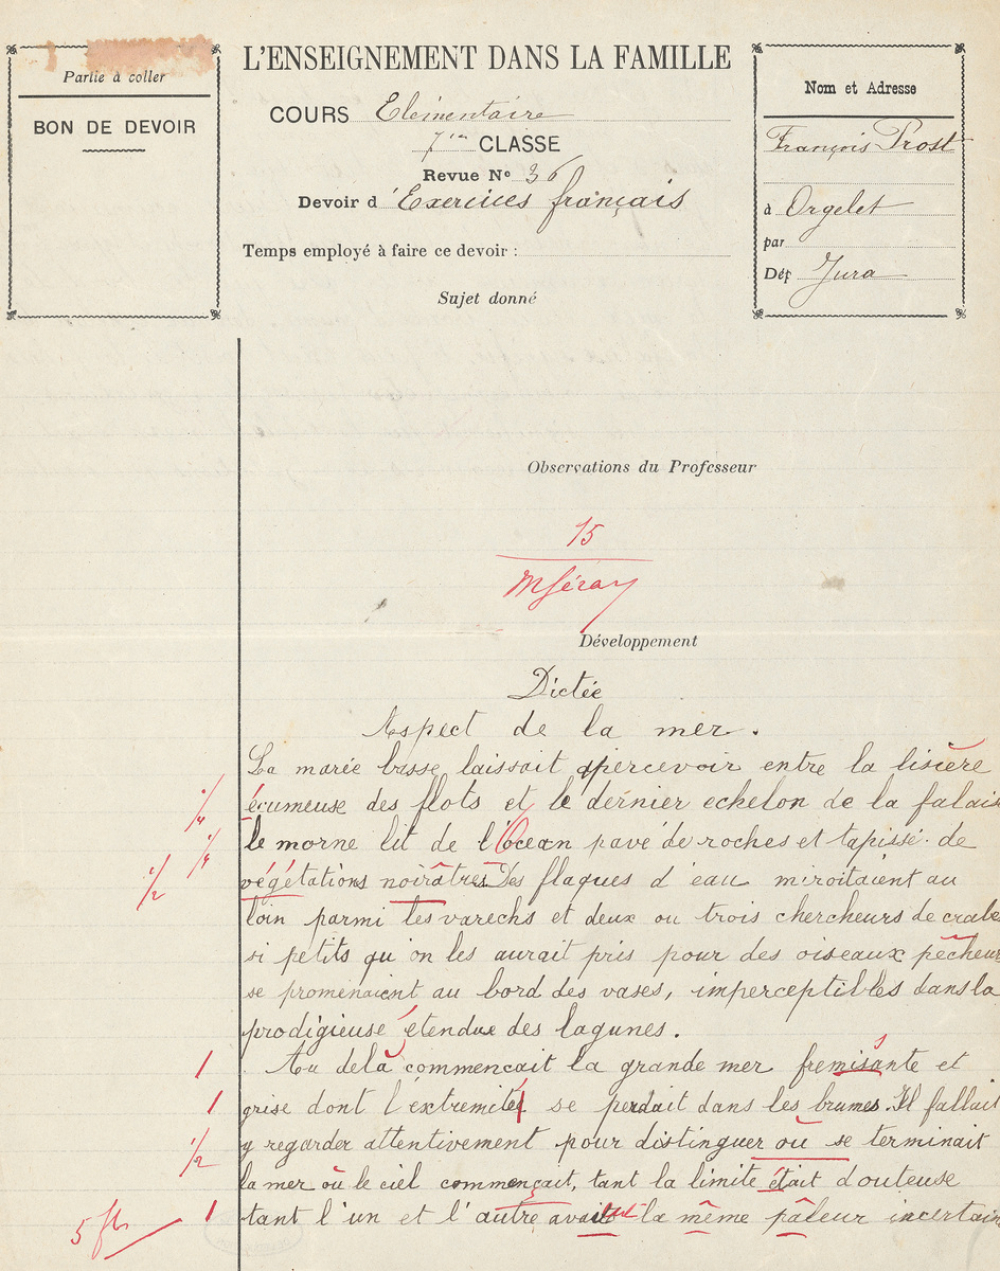 Partie à coller
BON DE DEVOIR
L'ENSEIGNEMENT DANS LA FAMILLE
COURS Elémentaire
7ième CLASSE
Revue No 36
Devoir d'Exercices français
Temps employé à faire ce devoir :
Sujet donné
Nom et Adresse
François Prost
à Orgelet
par
Dép Jura
Observations du Professeur
15
Développement
Dictée
Aspect de la mer.
La marée basse laissait apercevoir entre la lisière
1/4 écumeuse des flots et le dernier echelon de la falais
1/4 le morne lit de l'Océan pavé de roches et tapissé de
1/2 végétations noirâtres. Des flaques d'eau miroitaient au
loin parmi les varechs et deux ou trois chercheurs de crabe
si petits qu'on les aurait pris pour des oiseaux pêcheur
se promenaient au bord des vases, imperceptibles dans la
prodigieuse étendue des lagunes.
1 Au delà commençait la grande mer fremisante et
1 grise dont l'extremité se perdait dans les brumes. Il fallait
1/2 y regarder attentivement pour distinguer où se terminait
la mer où le ciel commençait, tant la limite était douteuse
5 fts 1 tant l'un et l'autre avait la même pâleur incertain